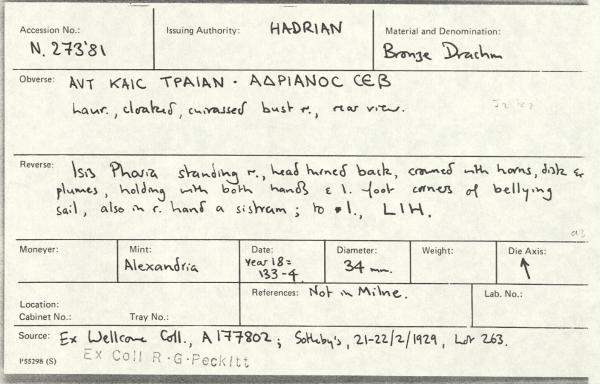 Accession No.: N. 273'81
Issuing Authority: HADRIAN
Material and Denomination: Bronze Drachm
Obverse: ΑVΤ ΚΑΙC ΤΡΑΙΑΝ · ΑΔΡΙΑΝΟC CЄΒ
laur., cloaked, cuirassed bust r., rear view.
Reverse: Isis Pharia standing r., head turned back, crowned with horns, disk &
plumes, holding with both hands & l. foot corners of bellying
sail, also in r. hand a sistrum; to l., LIH.
Moneyer:
Mint: Alexandria
Date: year 18 = 133-4
Diameter: 34 mm.
Weight:
Die Axis: ↑
Location:
Cabinet No.: Tray No.:
References: Not in Milne.
Lab. No.:
Source: Ex Wellcome Coll., A177802; Sotheby's, 21-22/2/1929, Lot 263.
Ex Coll R·G·Peckitt
P55298 (S)